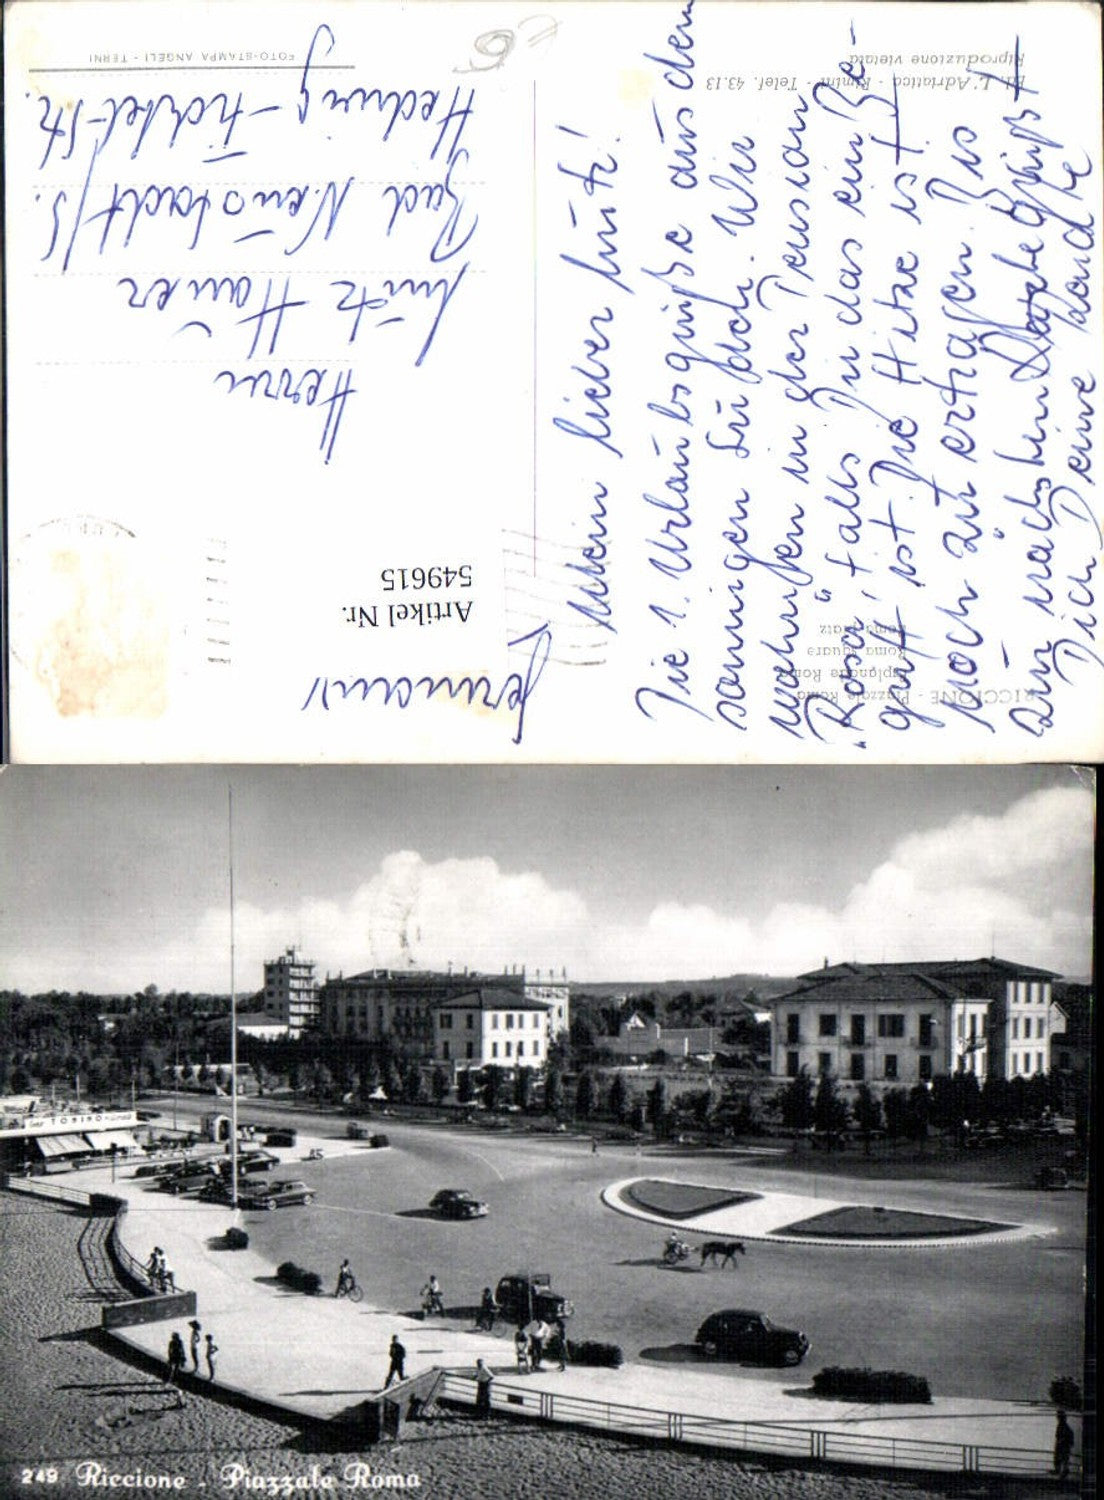 FOTO-STAMPA ANGELI - TERNI
Ed. L'Adriatica - Rimini - Telef. 43.13
Riproduzione vietata
RICCIONE - Piazzale Roma
Esplanade Roma
Roma Square
Roma Platz
Mein lieber Lutz!
Die 1. Urlaubsgrüße aus dem
sonnigen Süden. Wir
wohnen in der Pension
"Rosa", falls Du das ein Be-
griff ist. Die Hitze ist
noch zu ertragen. Bis
zum nächsten Mal grüßt
Dich Deine Tante
Herrn
Lutz Hauer
Bad Neustadt/S.
Hedwig-Fichtel-Str.
Germania
Artikel Nr.
549615
TORINO
249 Riccione - Piazzale Roma